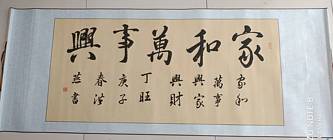 家和萬事興
家和
萬事
興家
興財
丁旺
庚子
春洪
燕書